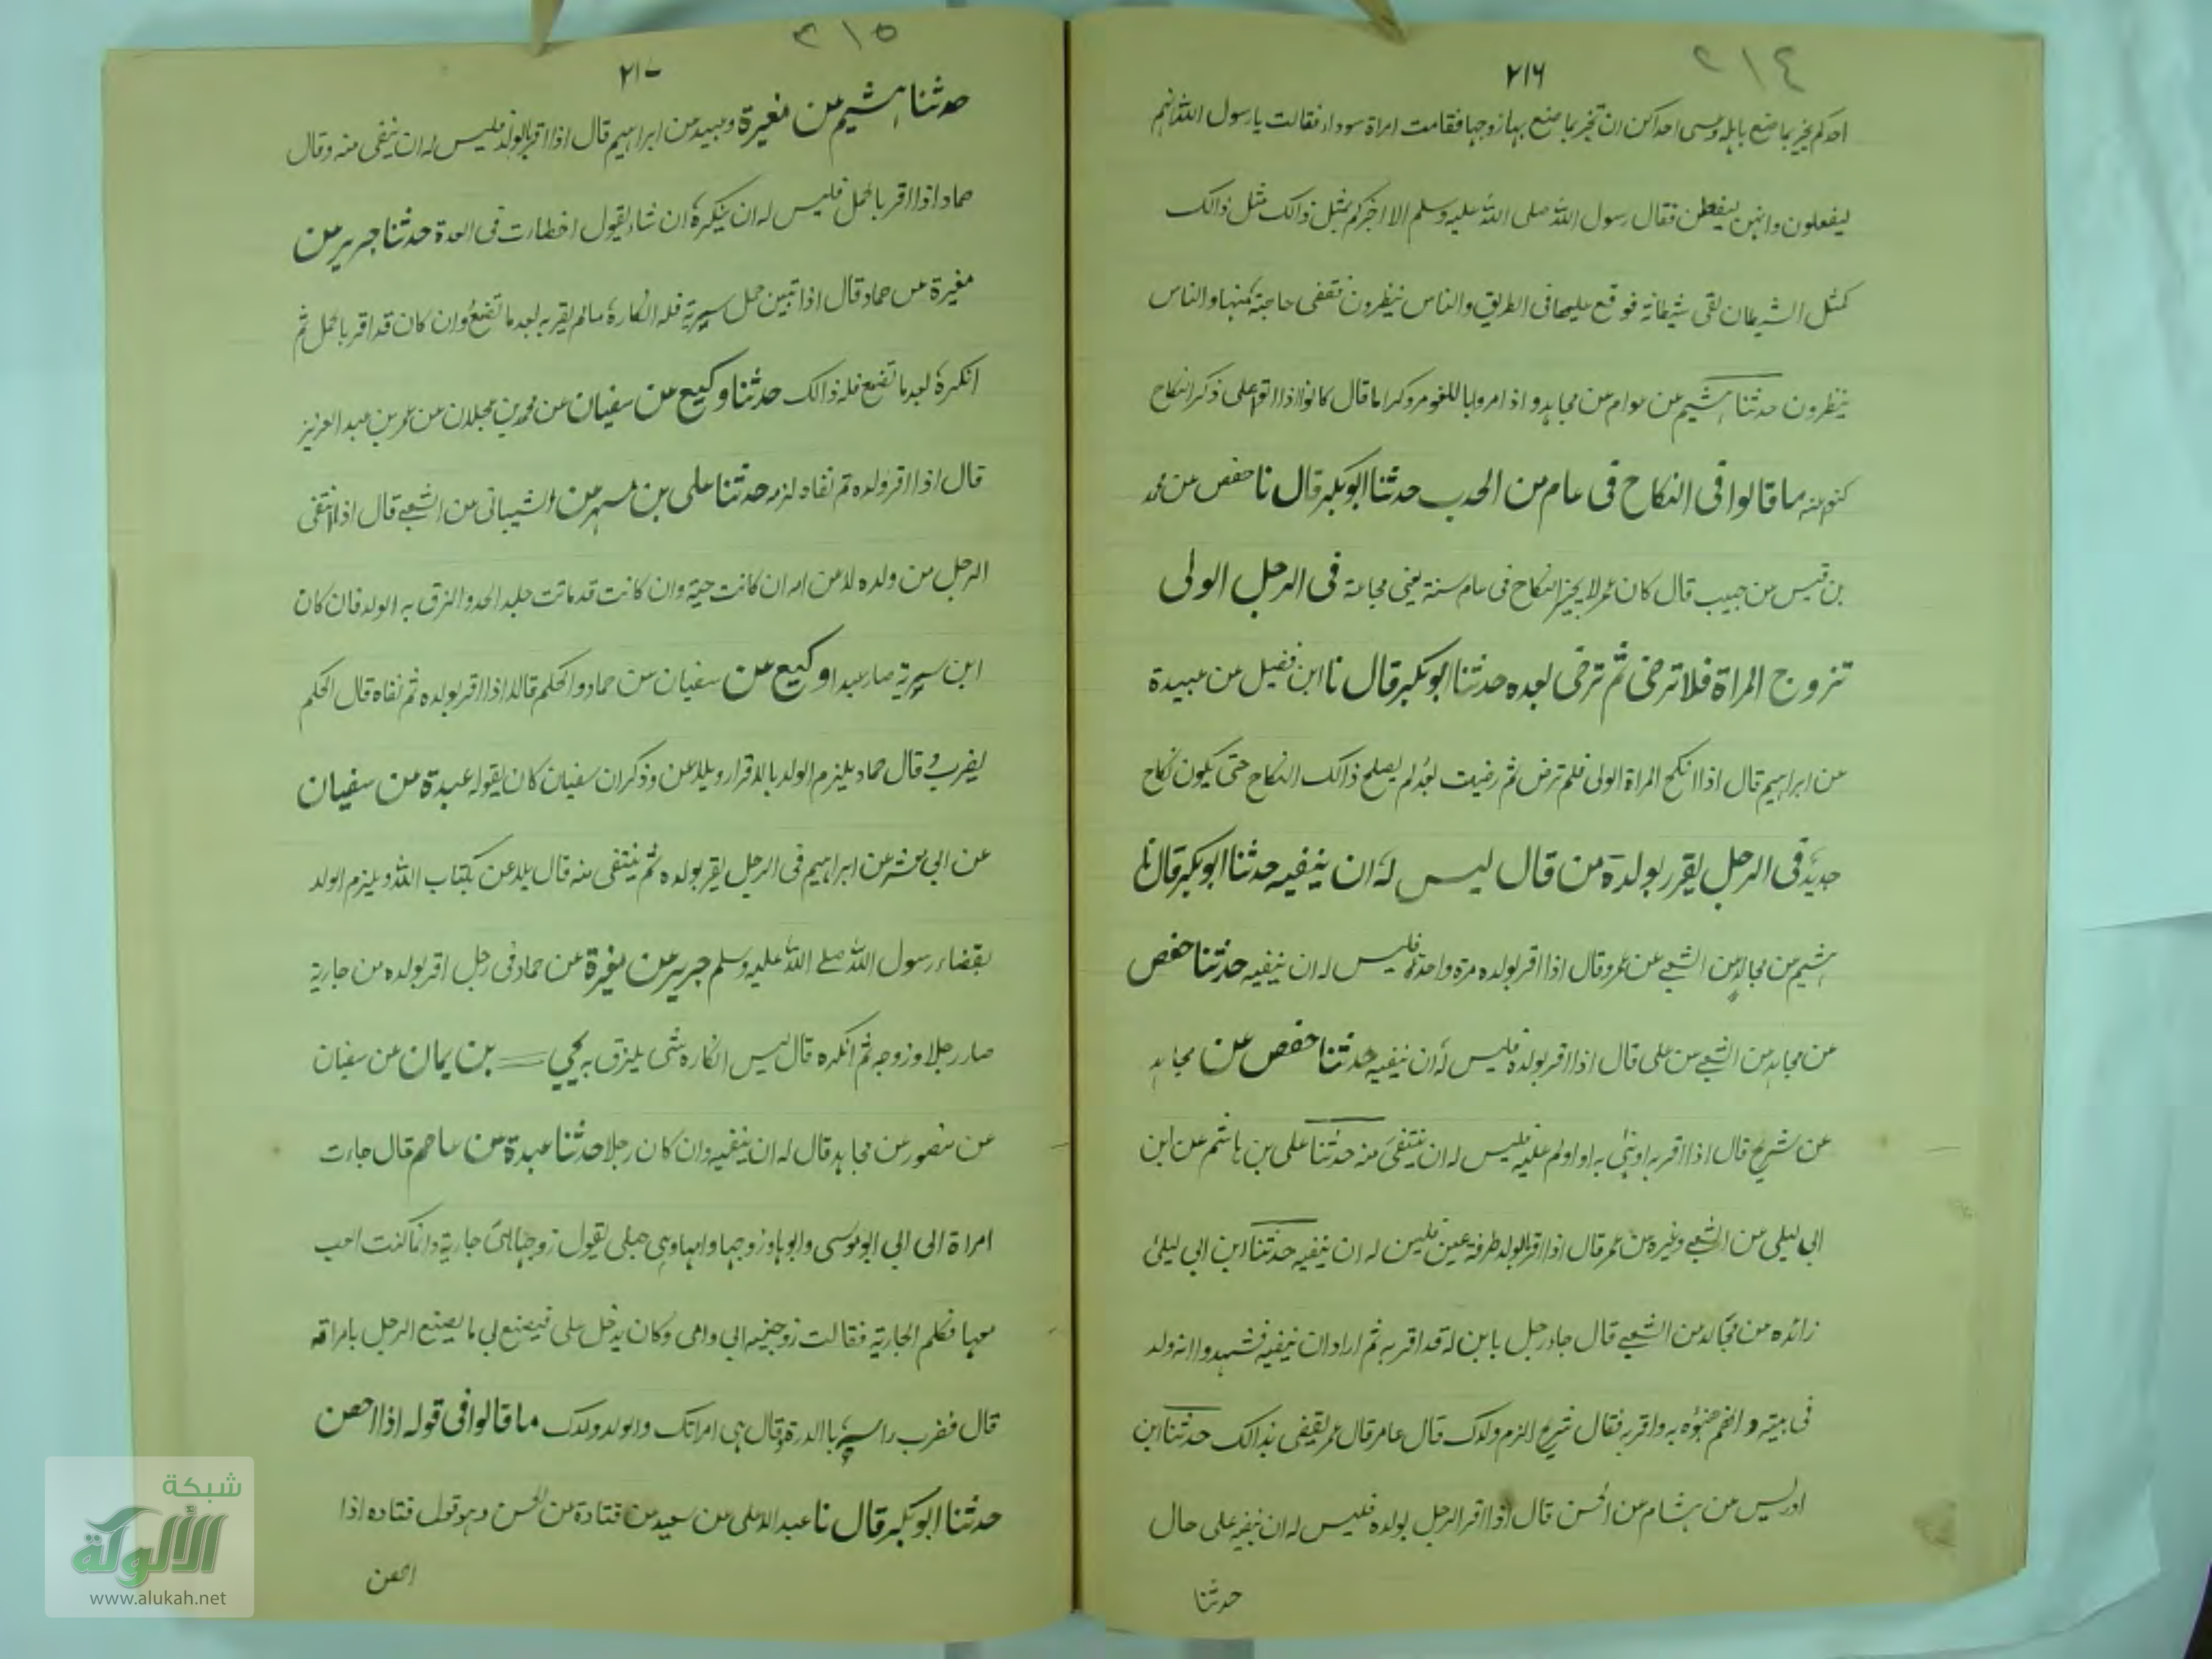 ٢١٤
٢١٦
احدكم يخبر بما صنع باهله وعسى احداكن ان تخبر بما صنع بها زوجها فقامت امراة سوداء فقالت يا رسول الله انهم
ليفعلون وانهن ليفعلن فقال رسول الله صلى الله عليه وسلم الا اخبركم بمثل ذالك مثل ذالك
كمثل الشيطان لقى شيطانة فوقع عليها فى الطريق والناس ينظرون فقضى حاجته منها والناس
ينظرون حدثنا هشيم عن عوام عن مجاهد واذا مروا باللغو مروا كراما قال كانوا اذا اتوا على ذكر النكاح
كنوا عنه ما قالوا فى النكاح فى عام من الجدب حدثنا ابوبكر قال نا حفص عن محمد
بن قيس عن حبيب قال كان عمر لا يجيز النكاح فى عام سنة يعنى مجاعة فى الرجل الولى
تزوج المراة فلا ترضى ثم ترضى بعده حدثنا ابوبكر قال نا ابن فضيل عن عبيدة
عن ابراهيم قال اذا انكح المراة الولى فلم ترض ثم رضيت بعد لم يصلح ذالك النكاح حتى يكون نكاح
جديد فى الرجل يقرر بولده من قال ليس له ان ينفيه حدثنا ابوبكر قال نا
هشيم عن مجالد عن الشعبى عن عمر وقال اذا اقر بولده مرة واحدة فليس له ان ينفيه حدثنا حفص
عن مجاهد عن الشعبى عن على قال اذا اقر بولده فليس له ان ينفيه حدثنا حفص عن مجاهد
عن شريح قال اذا اقر به او هنى به او اولم عليه فليس له ان ينتفى منه حدثنا على بن هاشم عن ابن
ابى ليلى عن الشعبى وغيره عن عمر قال اذا اقر بالولد طرفة عين فليس له ان ينفيه حدثنا ابن ابى ليلى
زائده عن مجالد عن الشعبى قال جاء رجل بابن له قد اقر به ثم اراد ان ينفيه فشهدوا انه ولد
فى بيته وانهم هنؤه به واقر به فقال شريح الزم ولدك قال عامر قال عمر يقضى بذالك حدثنا ابن
ادريس عن هشام عن الحسن قال اذا اقر الرجل بولده فليس له ان ينفيه على حال
حدثنا
٢١٥
٢١٧
حدثنا هشيم عن مغيرة وعبيده عن ابراهيم قال اذا اقر بالولد فليس له ان ينفى منه وقال
حماد اذا اقر بالحمل فليس له ان ينكره ان شاء يقول اخطات فى العدة حدثنا جرير عن
مغيرة عن حماد قال اذا تبين حمل سرية فله انكاره ما لم يقر به بعد ما تضع وان كان قد اقر بالحمل ثم
انكره بعد ما تضع فله ذالك حدثنا وكيع عن سفيان عن محمد بن عجلان عن عمر بن عبد العزيز
قال اذا اقر ولده ثم نفاه لزمه حدثنا على بن مسهر عن الشيبانى عن الشعبى قال اذا انتفى
الرجل من ولده لاعن امه ان كانت حية وان كانت قد ماتت جلد الحد والزق به الولد فان كان
ابن سرية صار عبدا وكيع عن سفيان عن حماد والحكم قالا اذا اقر بولده ثم نفاه قال الحكم
يضرب وقال حماد يلزم الولد بالاقرار ويلاعن وذكر ان سفيان كان يقوله عبدة عن سفيان
عن ابى معشر عن ابراهيم فى الرجل يقر بولده ثم ينتفى منه قال يلاعن بكتاب الله ويلزم الولد
بقضاء رسول الله صلى الله عليه وسلم جرير عن مغيرة عن حماد فى رجل اقر بولده من جارية
صار رجلا وزوجه ثم انكره قال ليس انكاره شى يلزق به يحيى بن يمان عن سفيان
عن منصور عن مجاهد قال له ان ينفيه وان كان رجلا حدثنا عبدة عن عاصم قال جاءت
امراة الى ابى ابو موسى وابوها وزوجها وامها وهى حبلى يقول زوجها هى جارية وانما كنت العب
معها فكلم الجارية فقالت زوجنيه ابى وامى وكان يدخل على فيصنع بى ما يصنع الرجل بامراته
قال فضرب راسه بالدرة وقال هى امراتك والولد ولدك ما قالوا فى قوله اذا احصن
حدثنا ابوبكر قال نا عبد الاعلى عن سعيد عن قتادة عن الحسن وهو قول قتاده اذا
احصن
شبكة
الألوكة
www.alukah.net